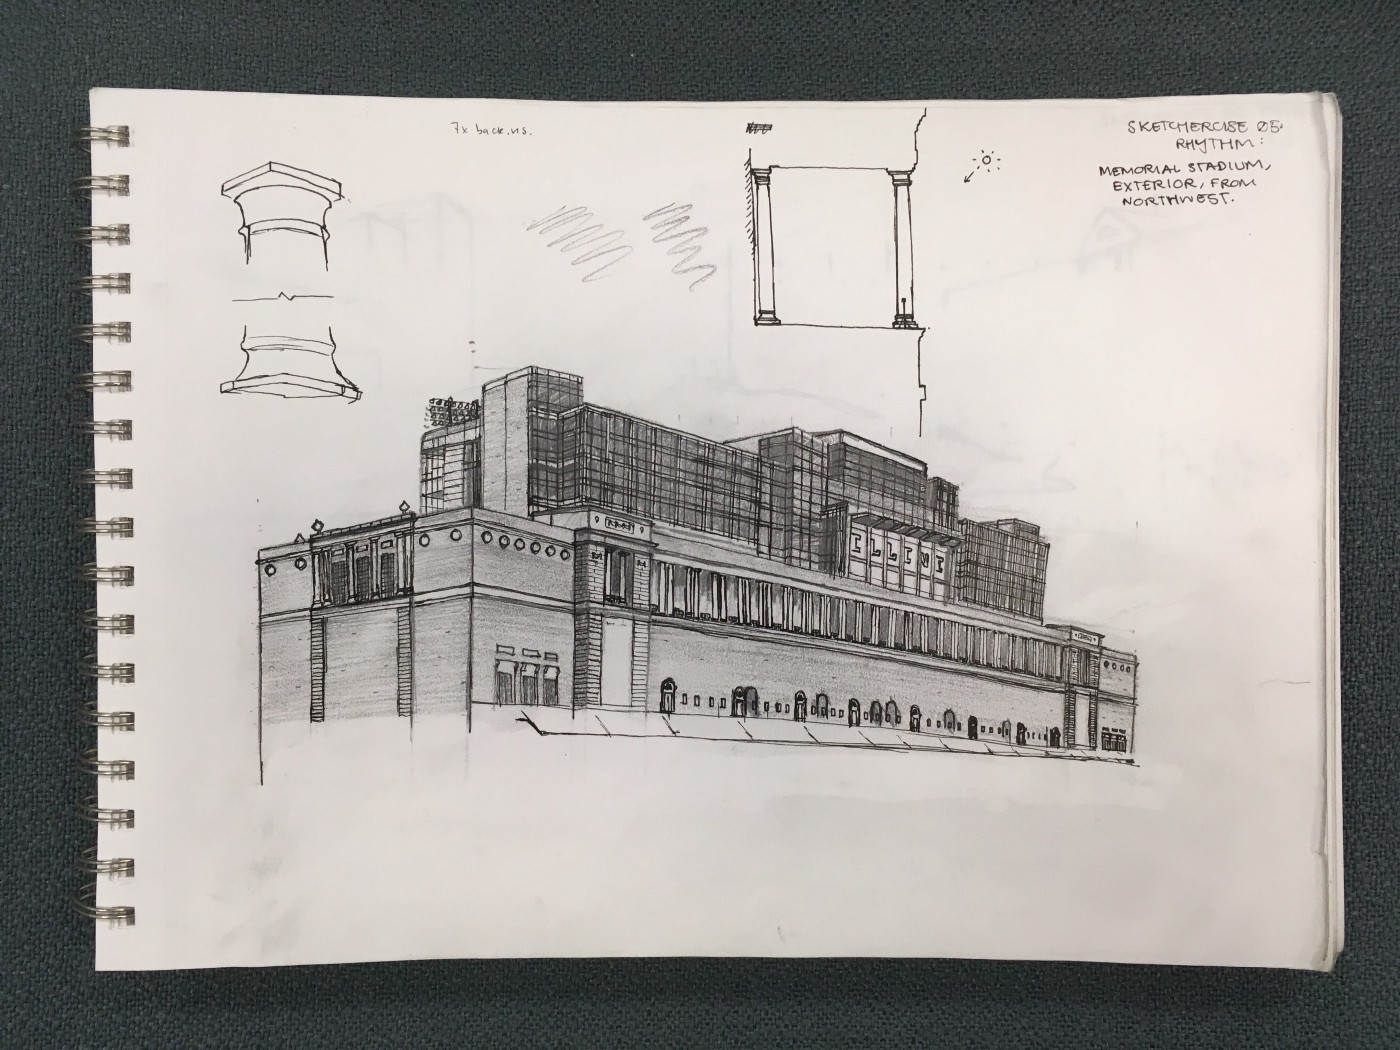 7x
SKETCHERCISE 05:
RHYTHM:
MEMORIAL STADIUM,
EXTERIOR, FROM
NORTHWEST.
ILLINI